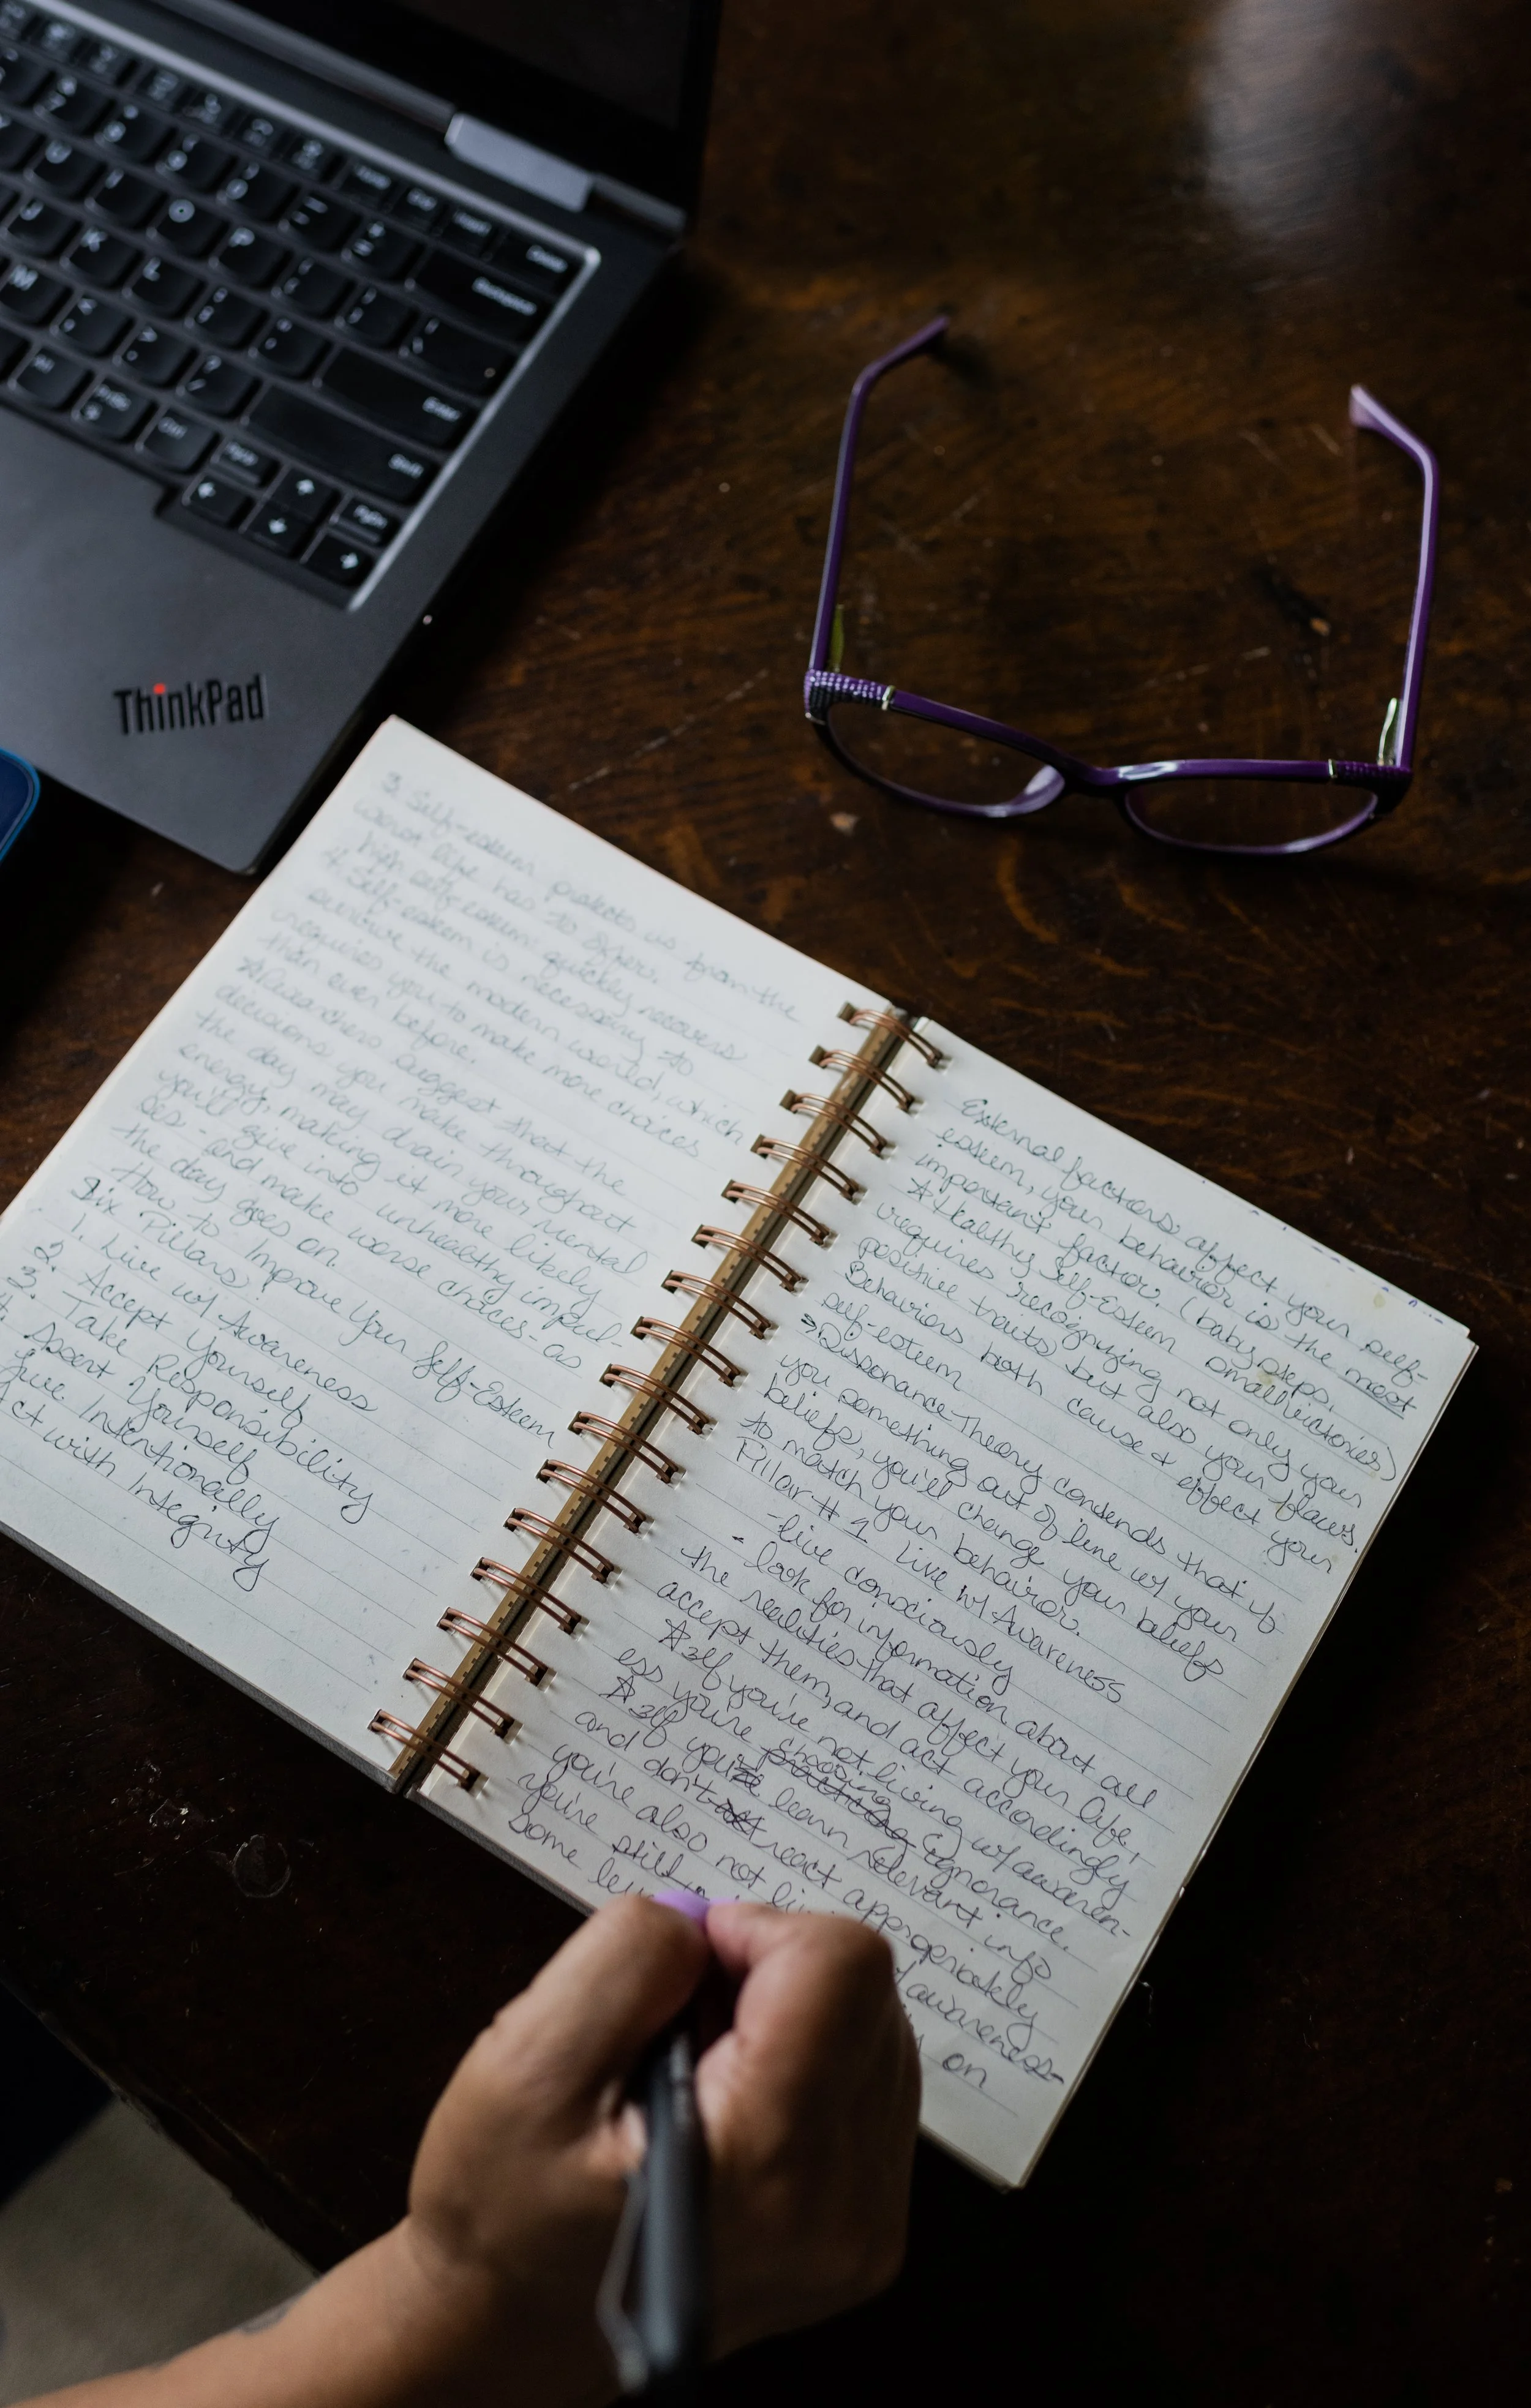 Backspace
Enter
Shift
Ctrl
PrtSc
PgUp
PgDn
Insert
Delete
P
K
L
M
ThinkPad
3. Self-esteem protects us from the
worst life has to offer.
high self-esteem: quickly recovers
4. Self-esteem is necessary to
survive the modern world, which
requires you to make more choices
than ever before.
☆Researchers suggest that the
decisions you make throughout
the day may drain your mental
energy, making it more likely
you'll give into unhealthy impul-
ses - and make worse choices - as
the day goes on.
How to Improve Your Self-Esteem
Six Pillars:
1. Live w/ Awareness
2. Accept Yourself
3. Take Responsibility
4. Assert Yourself
Live Intentionally
Act with Integrity
External factors affect your self-
esteem, your behavior is the most
important factor. (baby steps,
small victories)
☆Healthy Self-Esteem
requires recognizing not only your
positive traits but also your flaws.
Behaviors both cause & effect your
self-esteem
Dissonance Theory contends that if
you something out of line w/ your
beliefs, you'll change your beliefs
to match your behavior.
Pillar #1 Live w/ Awareness
-live consciously
- look for information about all
the realities that affect your life,
accept them, and act accordingly
☆If you're not living w/ awaren-
ess you're choosing practicing ignorance.
☆If you learn relevant info
and don't act react appropriately
you're also not w/ awareness-
you're still on
some